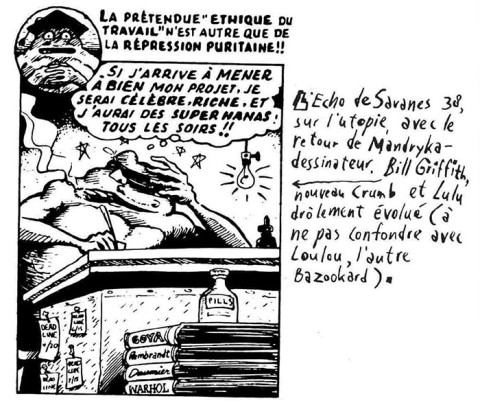 LA PRÉTENDUE "ETHIQUE DU
TRAVAIL" N'EST AUTRE QUE DE
LA RÉPRESSION PURITAINE!!
SI J'ARRIVE À MENER
À BIEN MON PROJET, JE
SERAI CÉLÈBRE, RICHE, ET
J'AURAI DES SUPER NANAS
TOUS LES SOIRS!!
L'Echo de Savanes 38,
sur l'utopie, avec le
retour de Mandryka-
dessinateur. Bill Griffith,
nouveau Crumb et Lulu
drôlement évolué (à
ne pas confondre avec
Loulou, l'autre
Bazookard).
PILLS
GOYA
Rembrandt
Daumier
WARHOL
DEAD
LINE
9/20
DEAD
LINE
DEAD
LINE
DEAD
LINE